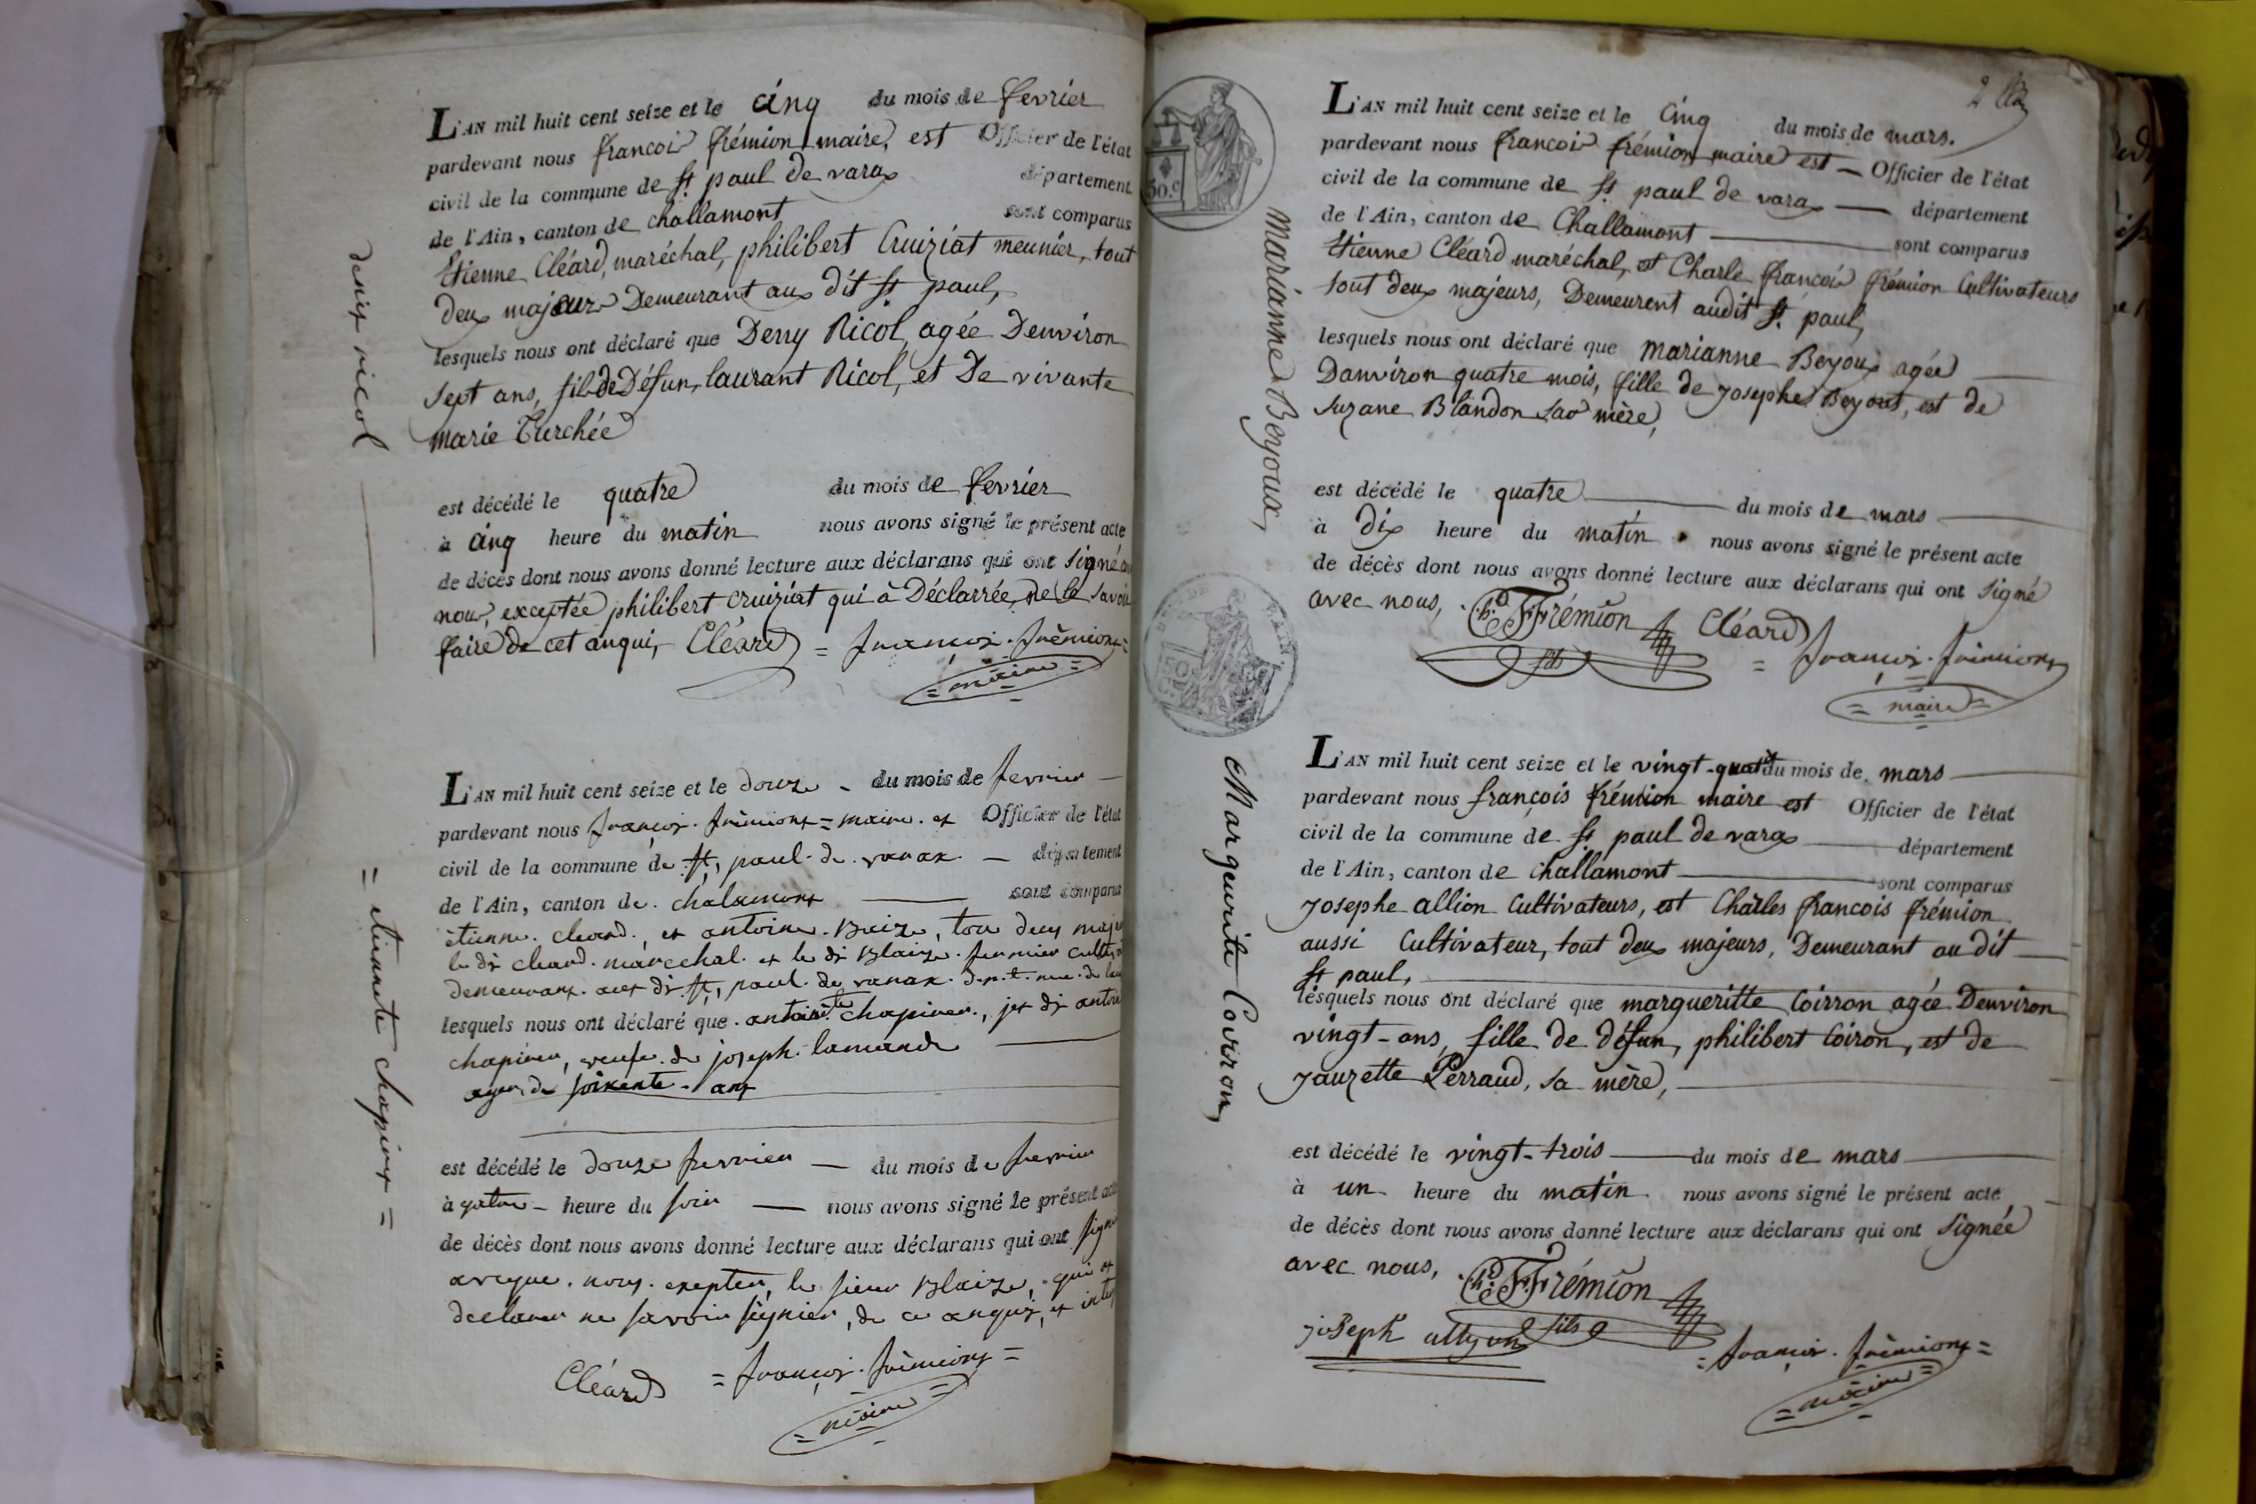 L'AN mil huit cent seize et le cinq du mois de fevrier
pardevant nous francoi frémion maire, est Officier de l'état
civil de la commune de St paul de varax département
de l'Ain, canton de challamont sont comparus
Etienne Cléard, maréchal, philibert Cruiziat meunier, tout
deux majeurs Demeurant aux dit St paul,
lesquels nous ont déclaré que Deny Ricol, agée Denviron
sept ans, fils de Défun, laurant Ricol, et De vivante
marie Turchée
est décédé le quatre du mois de fevrier
à cinq heure du matin nous avons signé le présent acte
de décès dont nous avons donné lecture aux déclarans qui ont signé
nous, exceptée philibert cruiziat qui à Déclarrée, ne le savoir
faire de cet anqui, Cléard = françois . frémion =
= maire =
denis ricol
L'AN mil huit cent seize et le douze du mois de fevrier
pardevant nous françois . frémion = maire . et Officier de l'état
civil de la commune de St, paul . de . varax . département
de l'Ain, canton de . chalamont sont comparus
étienne . cleard . , et antoine . Blaize, tou deux
le di cleard . marechal . et le di Blaize . fermier
demeurant . aux di . St, paul . de varax .
lesquels nous ont déclaré que . chapiron ., di
chapiron, veufe . de joseph . lamande
agée, de soixente - ans
est décédé le douze fevrier du mois de fevrier
à quatre heure du soir nous avons signé le présent acte
de décès dont nous avons donné lecture aux déclarans qui ont signé
aveque . nous . exepter, le sieur Blaize, qui
declarer ne savoir signier, de ce anquis, et
Cléard = françois . frémion =
= maire =
= etiennete chapiron =
2
L'AN mil huit cent seize et le Cinq du mois de mars.
pardevant nous francoi frémion maire est Officier de l'état
civil de la commune de St paul de varax département
de l'Ain, canton de Challamont sont comparus
Etienne Cléard maréchal, est Charle françoi frémion Cultivateurs
tout deux majeurs, Demeurent audit St paul,
lesquels nous ont déclaré que marianne Beyoux agée
Danviron quatre mois, fille de josephe Beyout, est de
Suzane Blandon sa mère,
est décédé le quatre du mois de mars
à Dix heure du matin nous avons signé le présent acte
de décès dont nous avons donné lecture aux déclarans qui ont signé
avec nous, Ch. F. Frémion Cléard
fils = françois . frémion
= maire =
marianne Beyoux,
50.c
L'AN mil huit cent seize et le vingt-quatre du mois de mars
pardevant nous françois frémion maire est Officier de l'état
civil de la commune de St paul de varax département
de l'Ain, canton de challamont sont comparus
josephe allion Cultivateurs, est Charles francois frémion
aussi Cultivateur, tout deux majeurs, Demeurant au dit
St paul,
lesquels nous ont déclaré que margueritte Coirron agée Denviron
vingt-ans, fille de défun, philibert Coiron, est de
jauzette Perraud, sa mère,
est décédé le vingt-trois du mois de mars
à un heure du matin nous avons signé le présent acte
de décès dont nous avons donné lecture aux déclarans qui ont signée
avec nous, Ch. F. Frémion
joseph allyon fils
= françois . frémion =
= maire =
Margeurite Coirron,